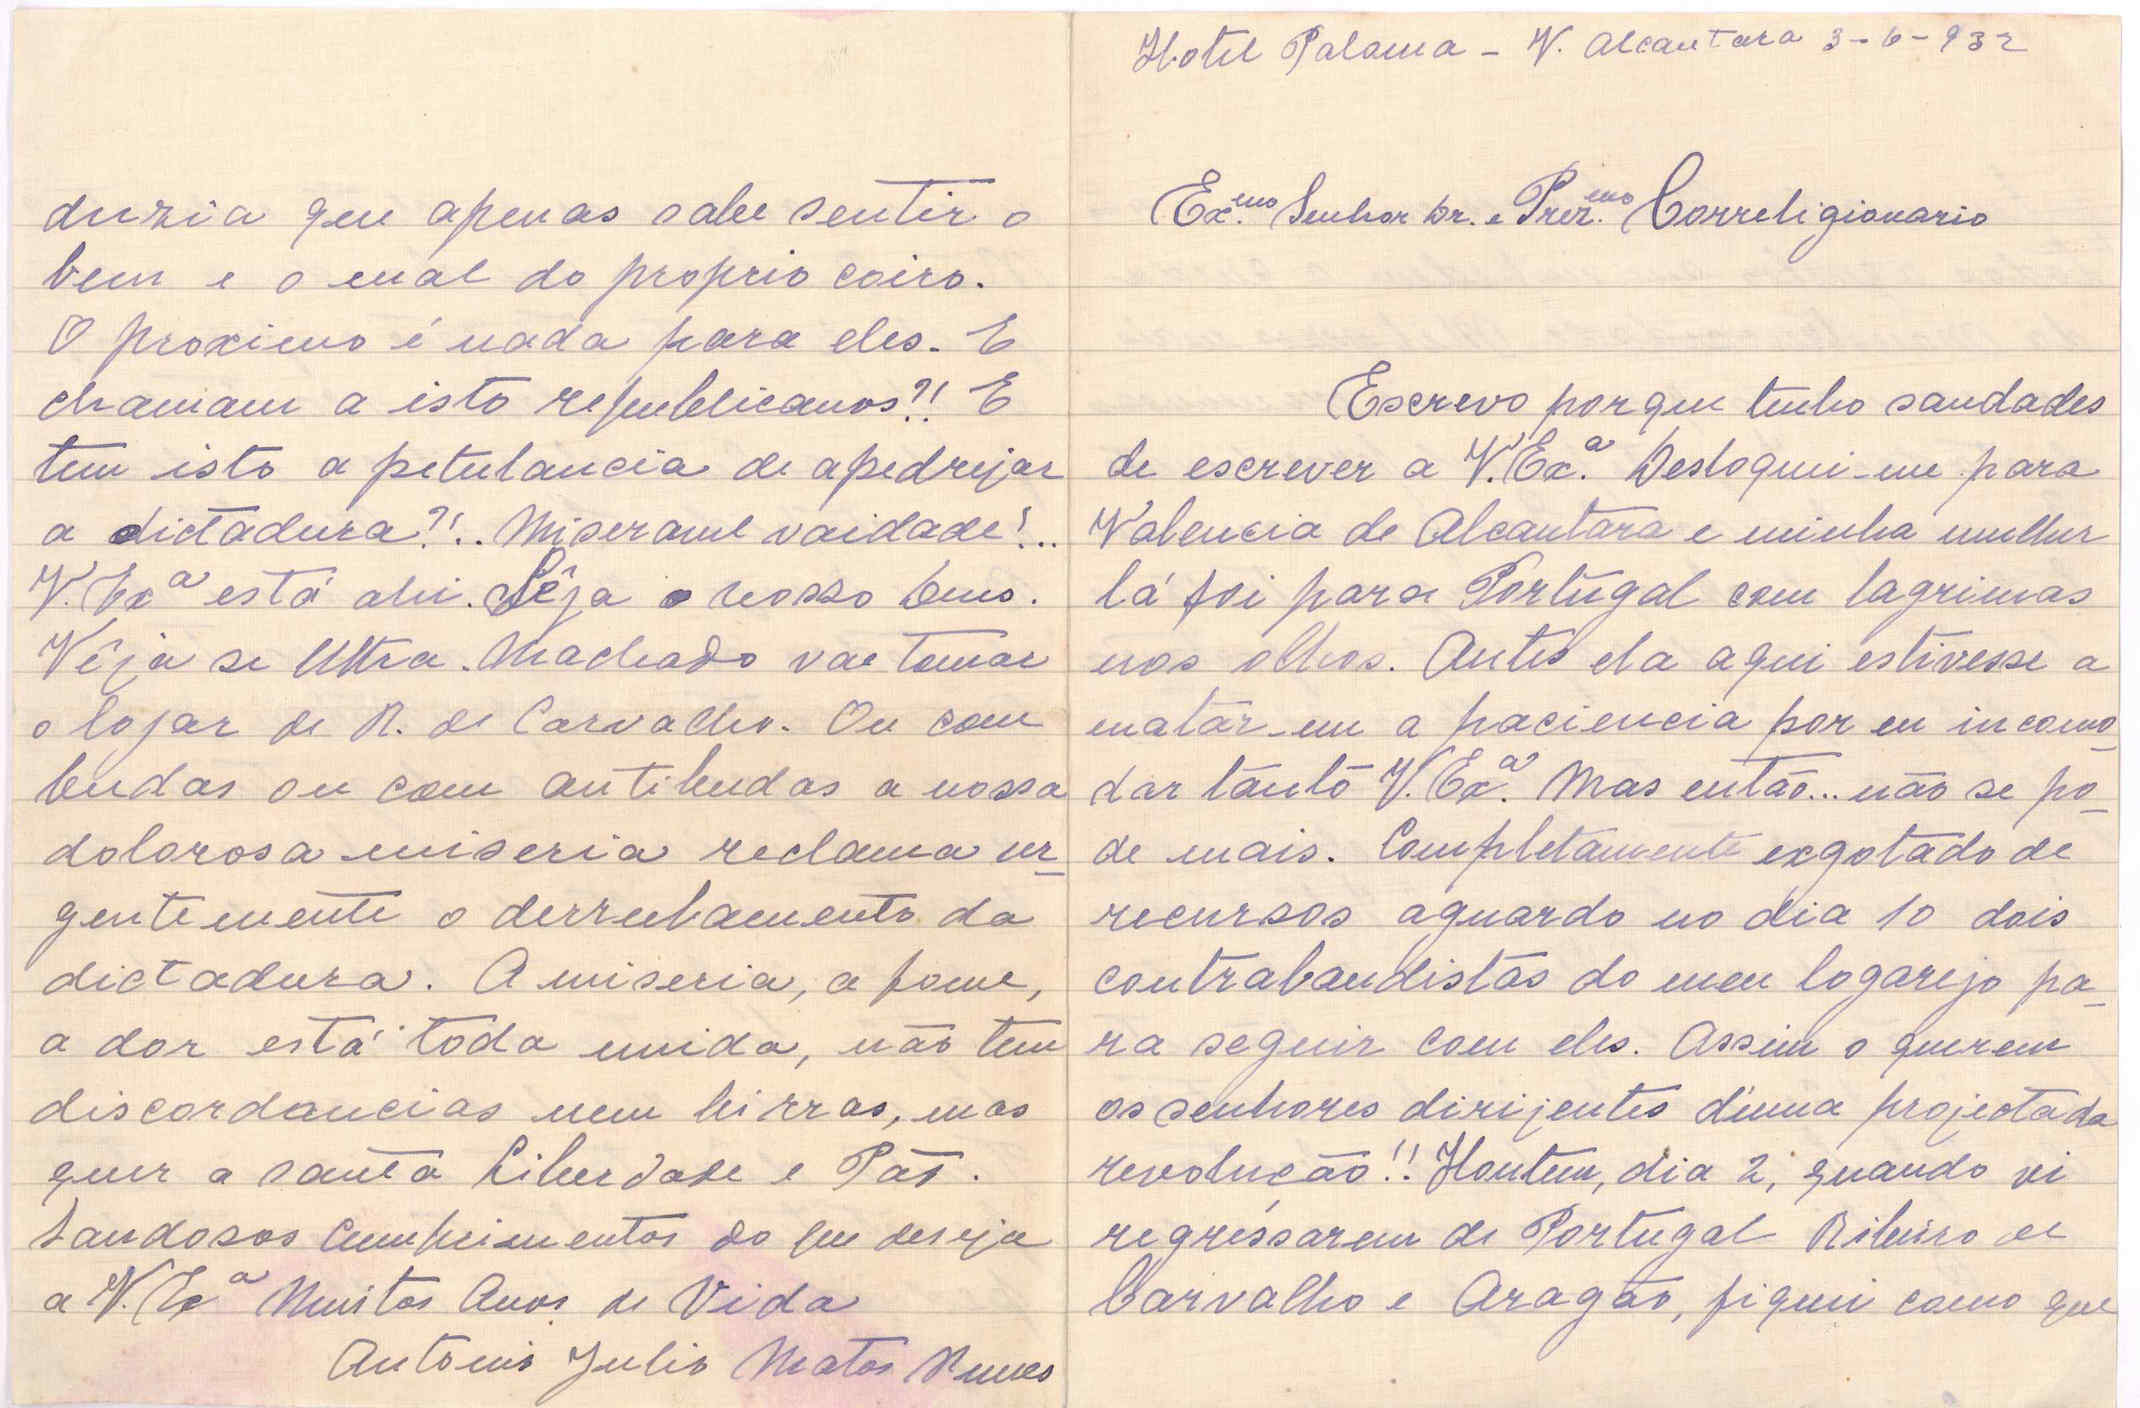 Hotel Paloma - V. Alcantara 3-6-932
Ex.mo Senhor Dr. e Prez.mo Correligionario
Escrevo porque tenho saudades
de escrever a V. Ex.a Desloquei-me para
Valencia de Alcantara e minha mulher
lá foi para Portugal com lagrimas
nos olhos. Antes ela aqui estivesse a
matár-me a paciencia por eu incomo-
dar tanto V. Ex.a. Mas então... não se po-
de mais. Completamente exgotado de
recursos aguardo no dia 10 dois
contrabandistas do meu logarejo pa-
ra seguir com eles. Assim o querem
os senhores dirijentes d'uma projectada
revolução!! Hontem, dia 2, quando vi
regressarem de Portugal Ribeiro de
Carvalho e Aragão, fiquei como que
duzia que apenas sabe sentir o
bem e o mal do proprio coiro.
O proximo é nada para eles. E
chamam a isto republicanos?!! E
tem isto a petulancia de apedrejar
a dictadura?!.. Miseravel vaidade!...
V. Exa está ahi. Sêja o nosso Deus.
Vêja se Utra Machado vae tomar
o logar de R. de Carvalho. Ou com
budas ou com antibudas a nossa
dolorosa miseria reclama ur-
gentemente o derrubamento da
dictadura. A miseria, a fome,
a dor está toda unida, não tem
discordancias nem birras, mas
quer a santa Liberdade e Pão.
Saudosos cumprimentos do que deseja
a V. Exa Muitos Anos de Vida
Antonio Julio Matos Nunes